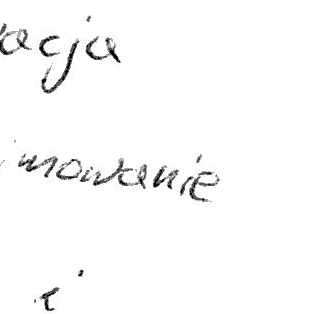 acja
mowanie
i